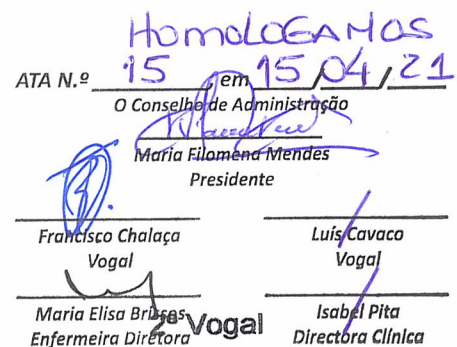 HOMOLOGAMOS
ATA N.º 15 em 15 / 04 / 21
O Conselho de Administração
Maria Filomena Mendes
Presidente
Francisco Chalaça
Vogal
Luís Cavaco
Vogal
Maria Elisa
Enfermeira Diretora
2º Vogal
Isabel Pita
Directora Clínica